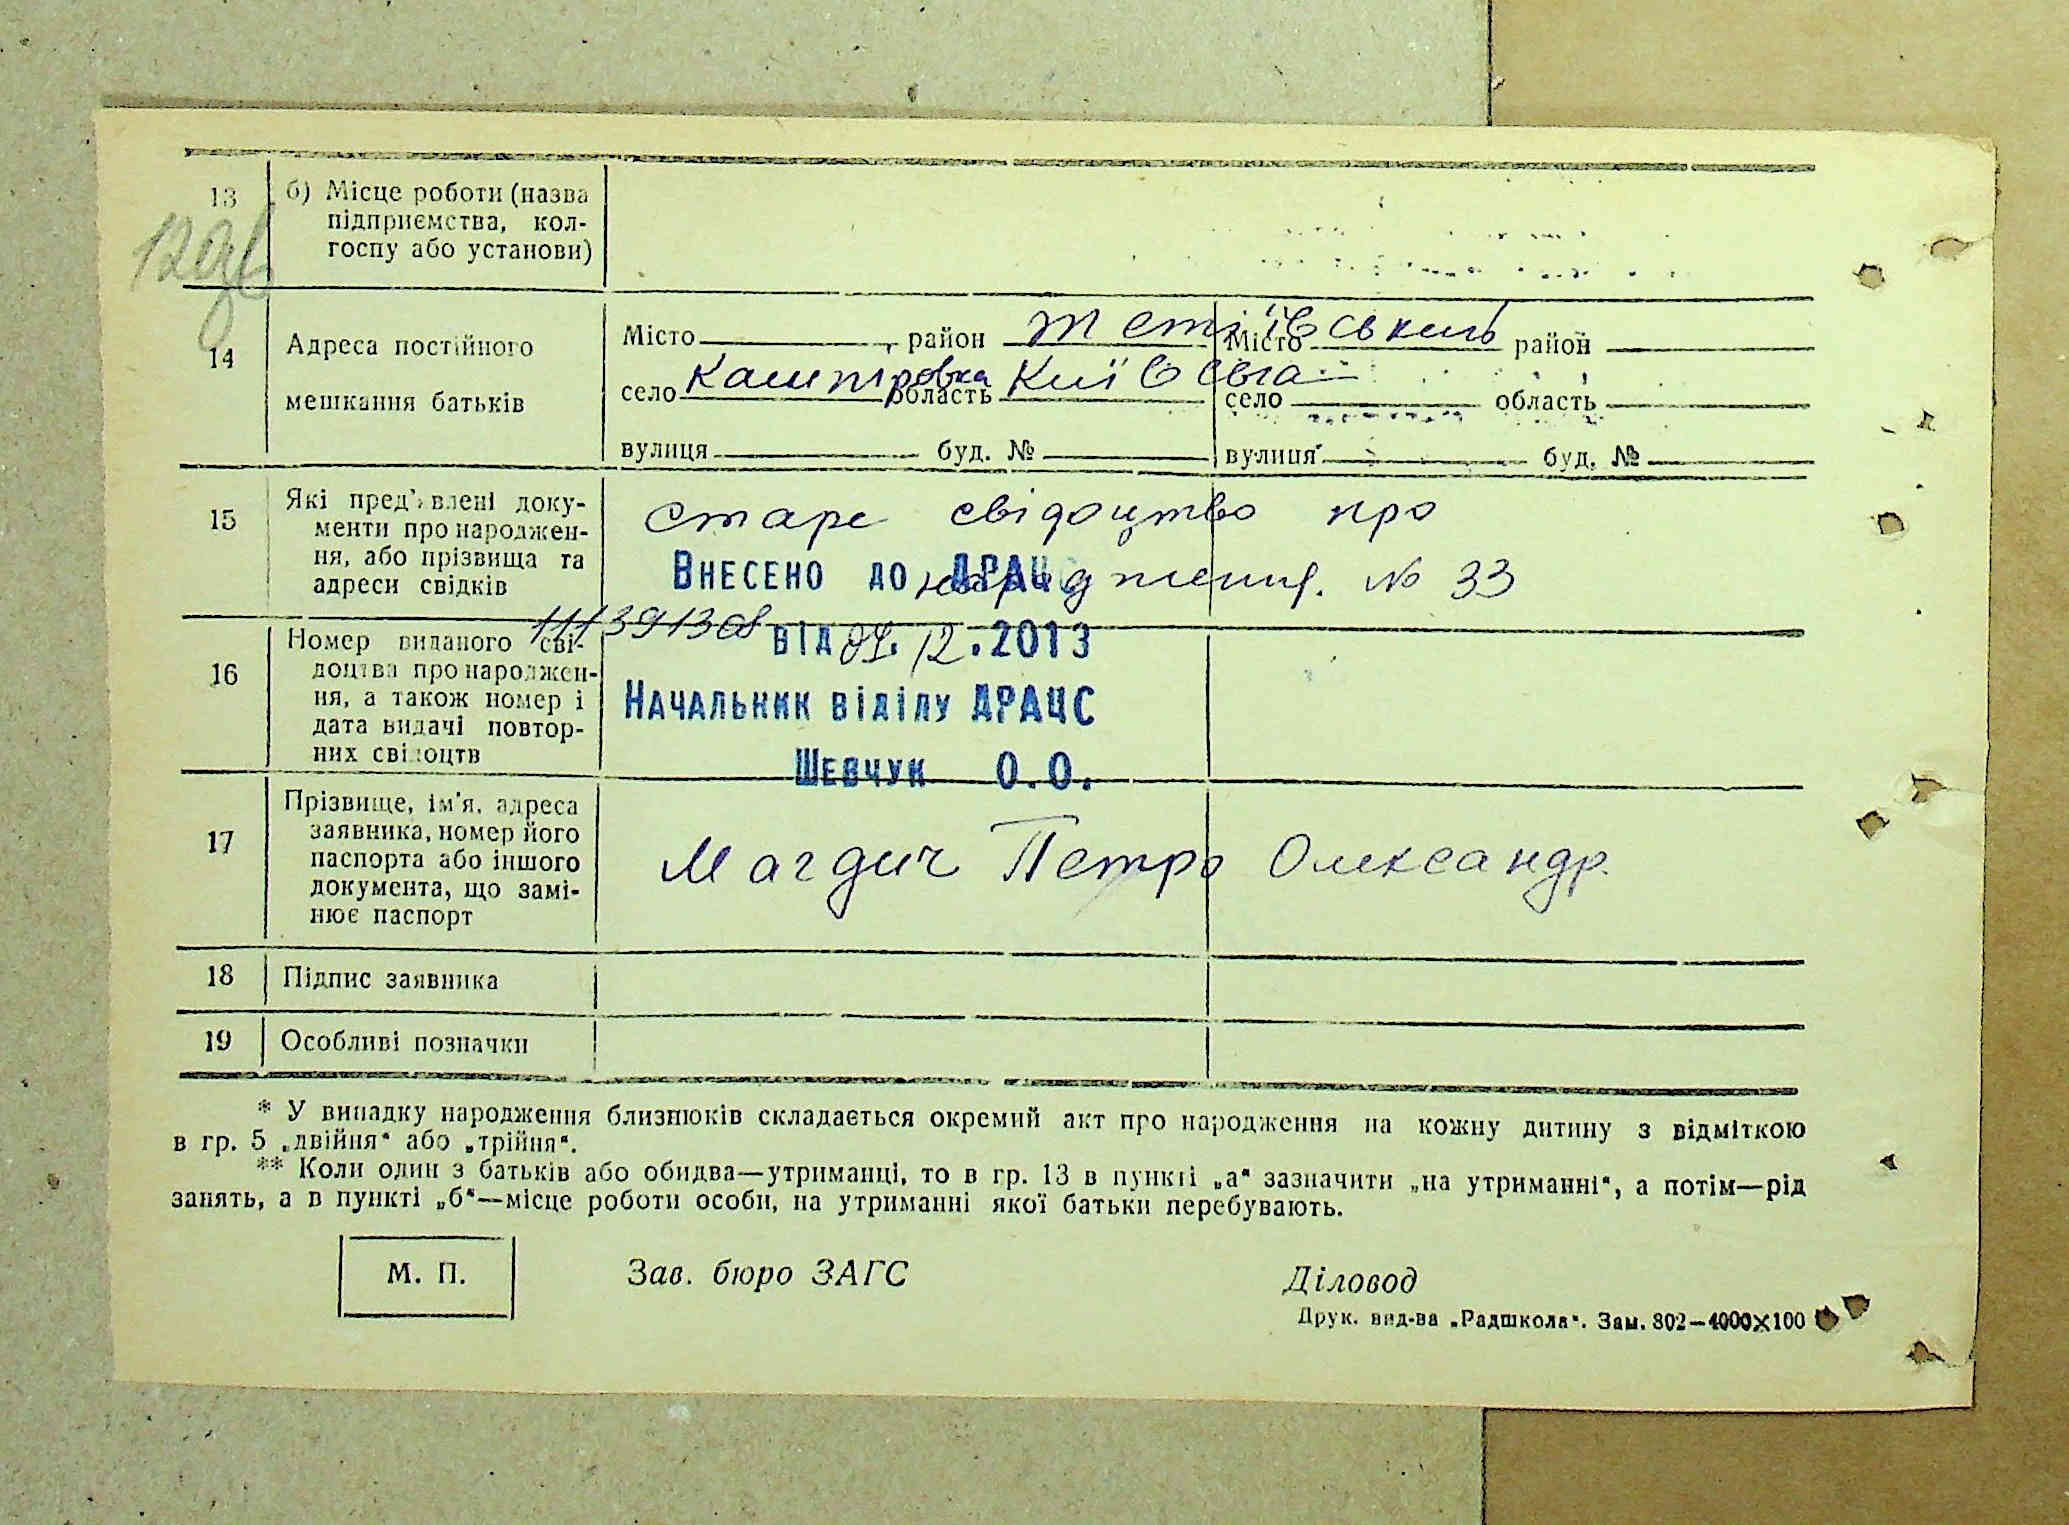 13 б) Місце роботи (назва
підприємства, кол-
госпу або установи)
14 Адреса постійного
мешкання батьків
Місто район Тетіївського Місто район
село Кашпіровка область Київська село область
вулиця буд. № вулиця буд. №
15 Які пред'явлені доку-
менти про народжен-
ня, або прізвища та
адреси свідків
старе свідоцтво про
народження. № 33
Внесено до ДРАЦС
111391308
від 04.12.2013
Начальник відділу ДРАЦС
Шевчук О.О.
16 Номер виданого сві-
доцтва про народжен-
ня, а також номер і
дата видачі повтор-
них свідоцтв
17 Прізвище, ім'я, адреса
заявника, номер його
паспорта або іншого
документа, що замі-
нює паспорт
Магдич Петро Олександр.
18 Підпис заявника
19 Особливі позначки
* У випадку народження близнюків складається окремий акт про народження на кожну дитину з відміткою
в гр. 5 „двійня“ або „трійня“.
** Коли один з батьків або обидва—утриманці, то в гр. 13 в пункті „а“ зазначити „на утриманні“, а потім—рід
занять, а в пункті „б“—місце роботи особи, на утриманні якої батьки перебувають.
М. П. Зав. бюро ЗАГС Діловод
Друк. вид-ва „Радшкола“. Зам. 802—4000×100